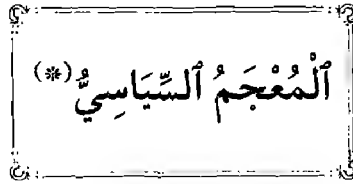 ٱلْمُعْجَمُ ٱلسِّيَاسِيُّ(*)